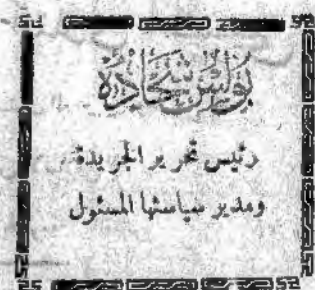 بولس شحاده
رئيس تحرير الجريدة
ومدير سياستها المسئول